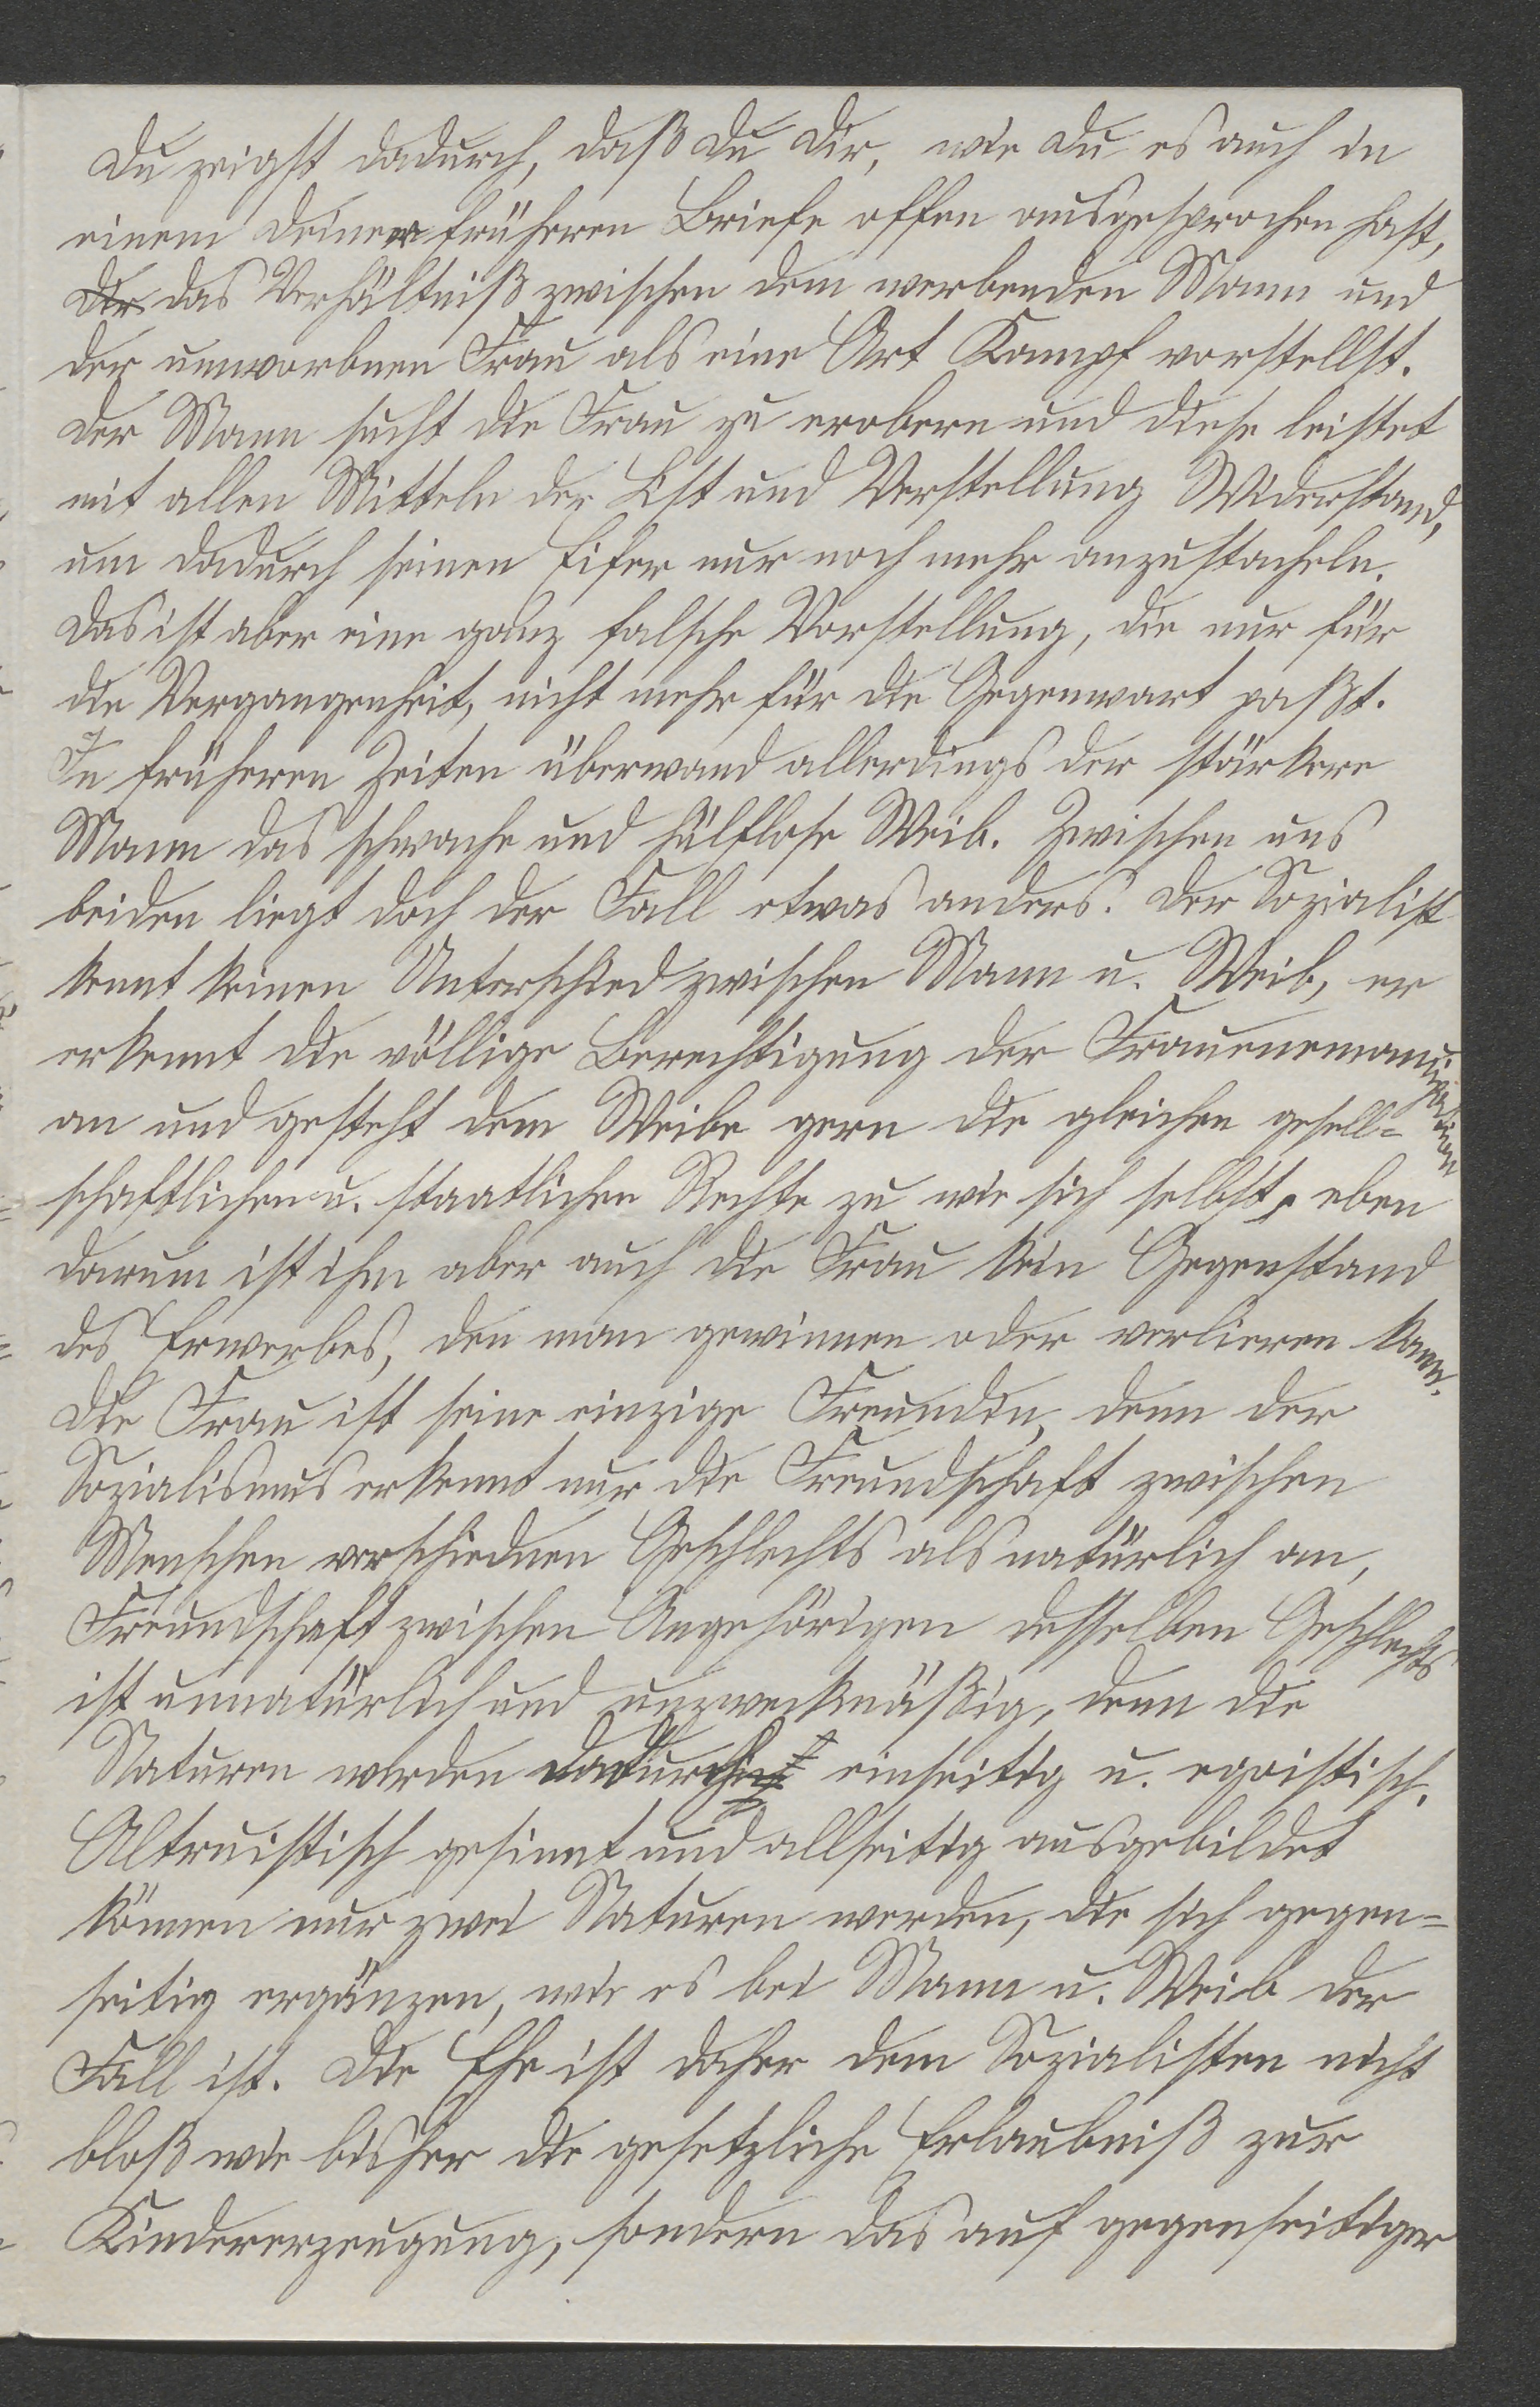 Du zeigst dadurch, daß Du Dir, wie Du es auch in
einem Deiner früheren Briefe offen ausgesprochen hast,
Dir das Verhältniß zwischen dem werbenden Mann und
der umworbnen Frau als eine Art Kampf vorstellst.
Der Mann sucht die Frau zu erobern und diese leistet
mit allen Mitteln der List und Verstellung Widerstand,
um dadurch seinen Eifer nur noch mehr anzustacheln.
Das ist aber eine ganz falsche Vorstellung, die nur für
die Vergangenheit, nicht mehr für die Gegenwart paßt.
In früheren Zeiten überwand allerdings der stärkere
Mann das schwache und hülflose Weib. Zwischen uns
beiden liegt doch der Fall etwas anders. Der Sozialist
kennt keinen Unterschied zwischen Mann u. Weib, er
erkennt die völlige Berechtigung der Frauenemanzipation
an und gesteht dem Weibe gern die gleichen gesell=
schaftlichen u. staatlichen Rechte zu wie sich selbst, eben
darum ist ihm aber auch die Frau kein Gegenstand
des Erwerbes, den man gewinnen oder verlieren kann.
Die Frau ist seine einzige Freundin, denn der
Sozialismus erkennt nur die Freundschaft zwischen
Menschen verschiednen Geschlechts als natürlich an,
Freundschaft zwischen Angehörigen desselben Geschlechts
ist unnatürlich und unzweckmäßig, denn die
Naturen werden dadurch einseitig u. egoistisch.
Altruistisch gesinnt und allseitig ausgebildet
können nur zwei Naturen werden, die sich gegen=
seitig ergänzen, wie es bei Mann u. Weib der
Fall ist. Die Ehe ist daher dem Sozialisten nicht
bloß wie bisher die gesetzliche Erlaubniß zur
Kindererzeugung, sondern das auf gegenseitiger